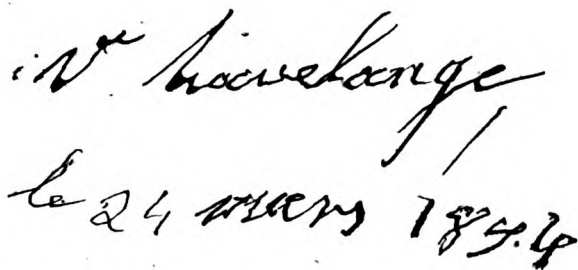 Vve havelange
le 24 mars 1854